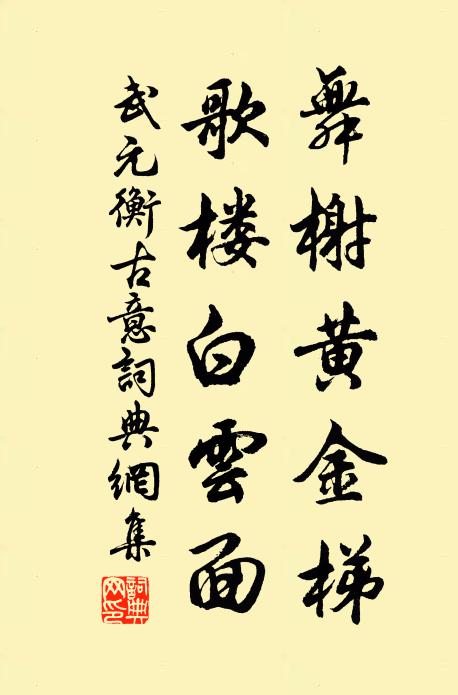 舞榭黄金梯
歌楼白雲面
武元衡古意詞典網集
詞典网印